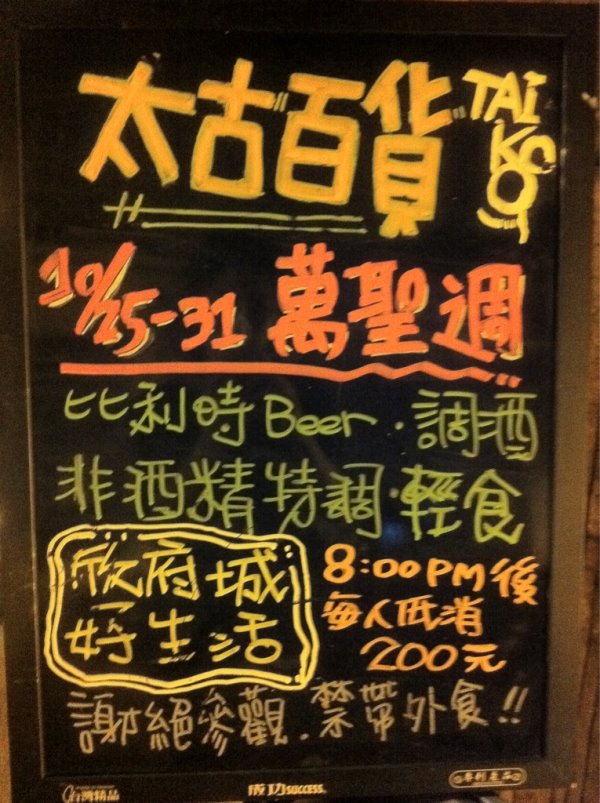 太古百貨 TAIKOO
10/25-31 萬聖週
比利時Beer·調酒
非酒精特調·輕食
欣府城
好生活
8:00PM後
每人低消
200元
謝絕參觀·禁帶外食!!
台灣精品
成功SUCCESS
專利產品